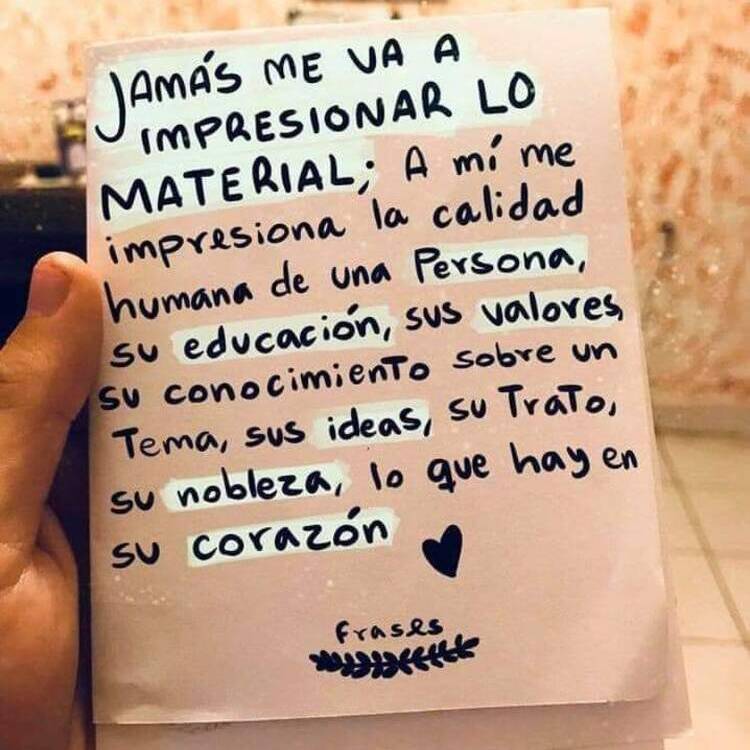 JAMÁS ME VA A
IMPRESIONAR LO
MATERIAL; A mí me
impresiona la calidad
humana de una Persona,
su educación, sus valores,
su conocimiento sobre un
Tema, sus ideas, su Trato,
su nobleza, lo que hay en
su corazón
frases